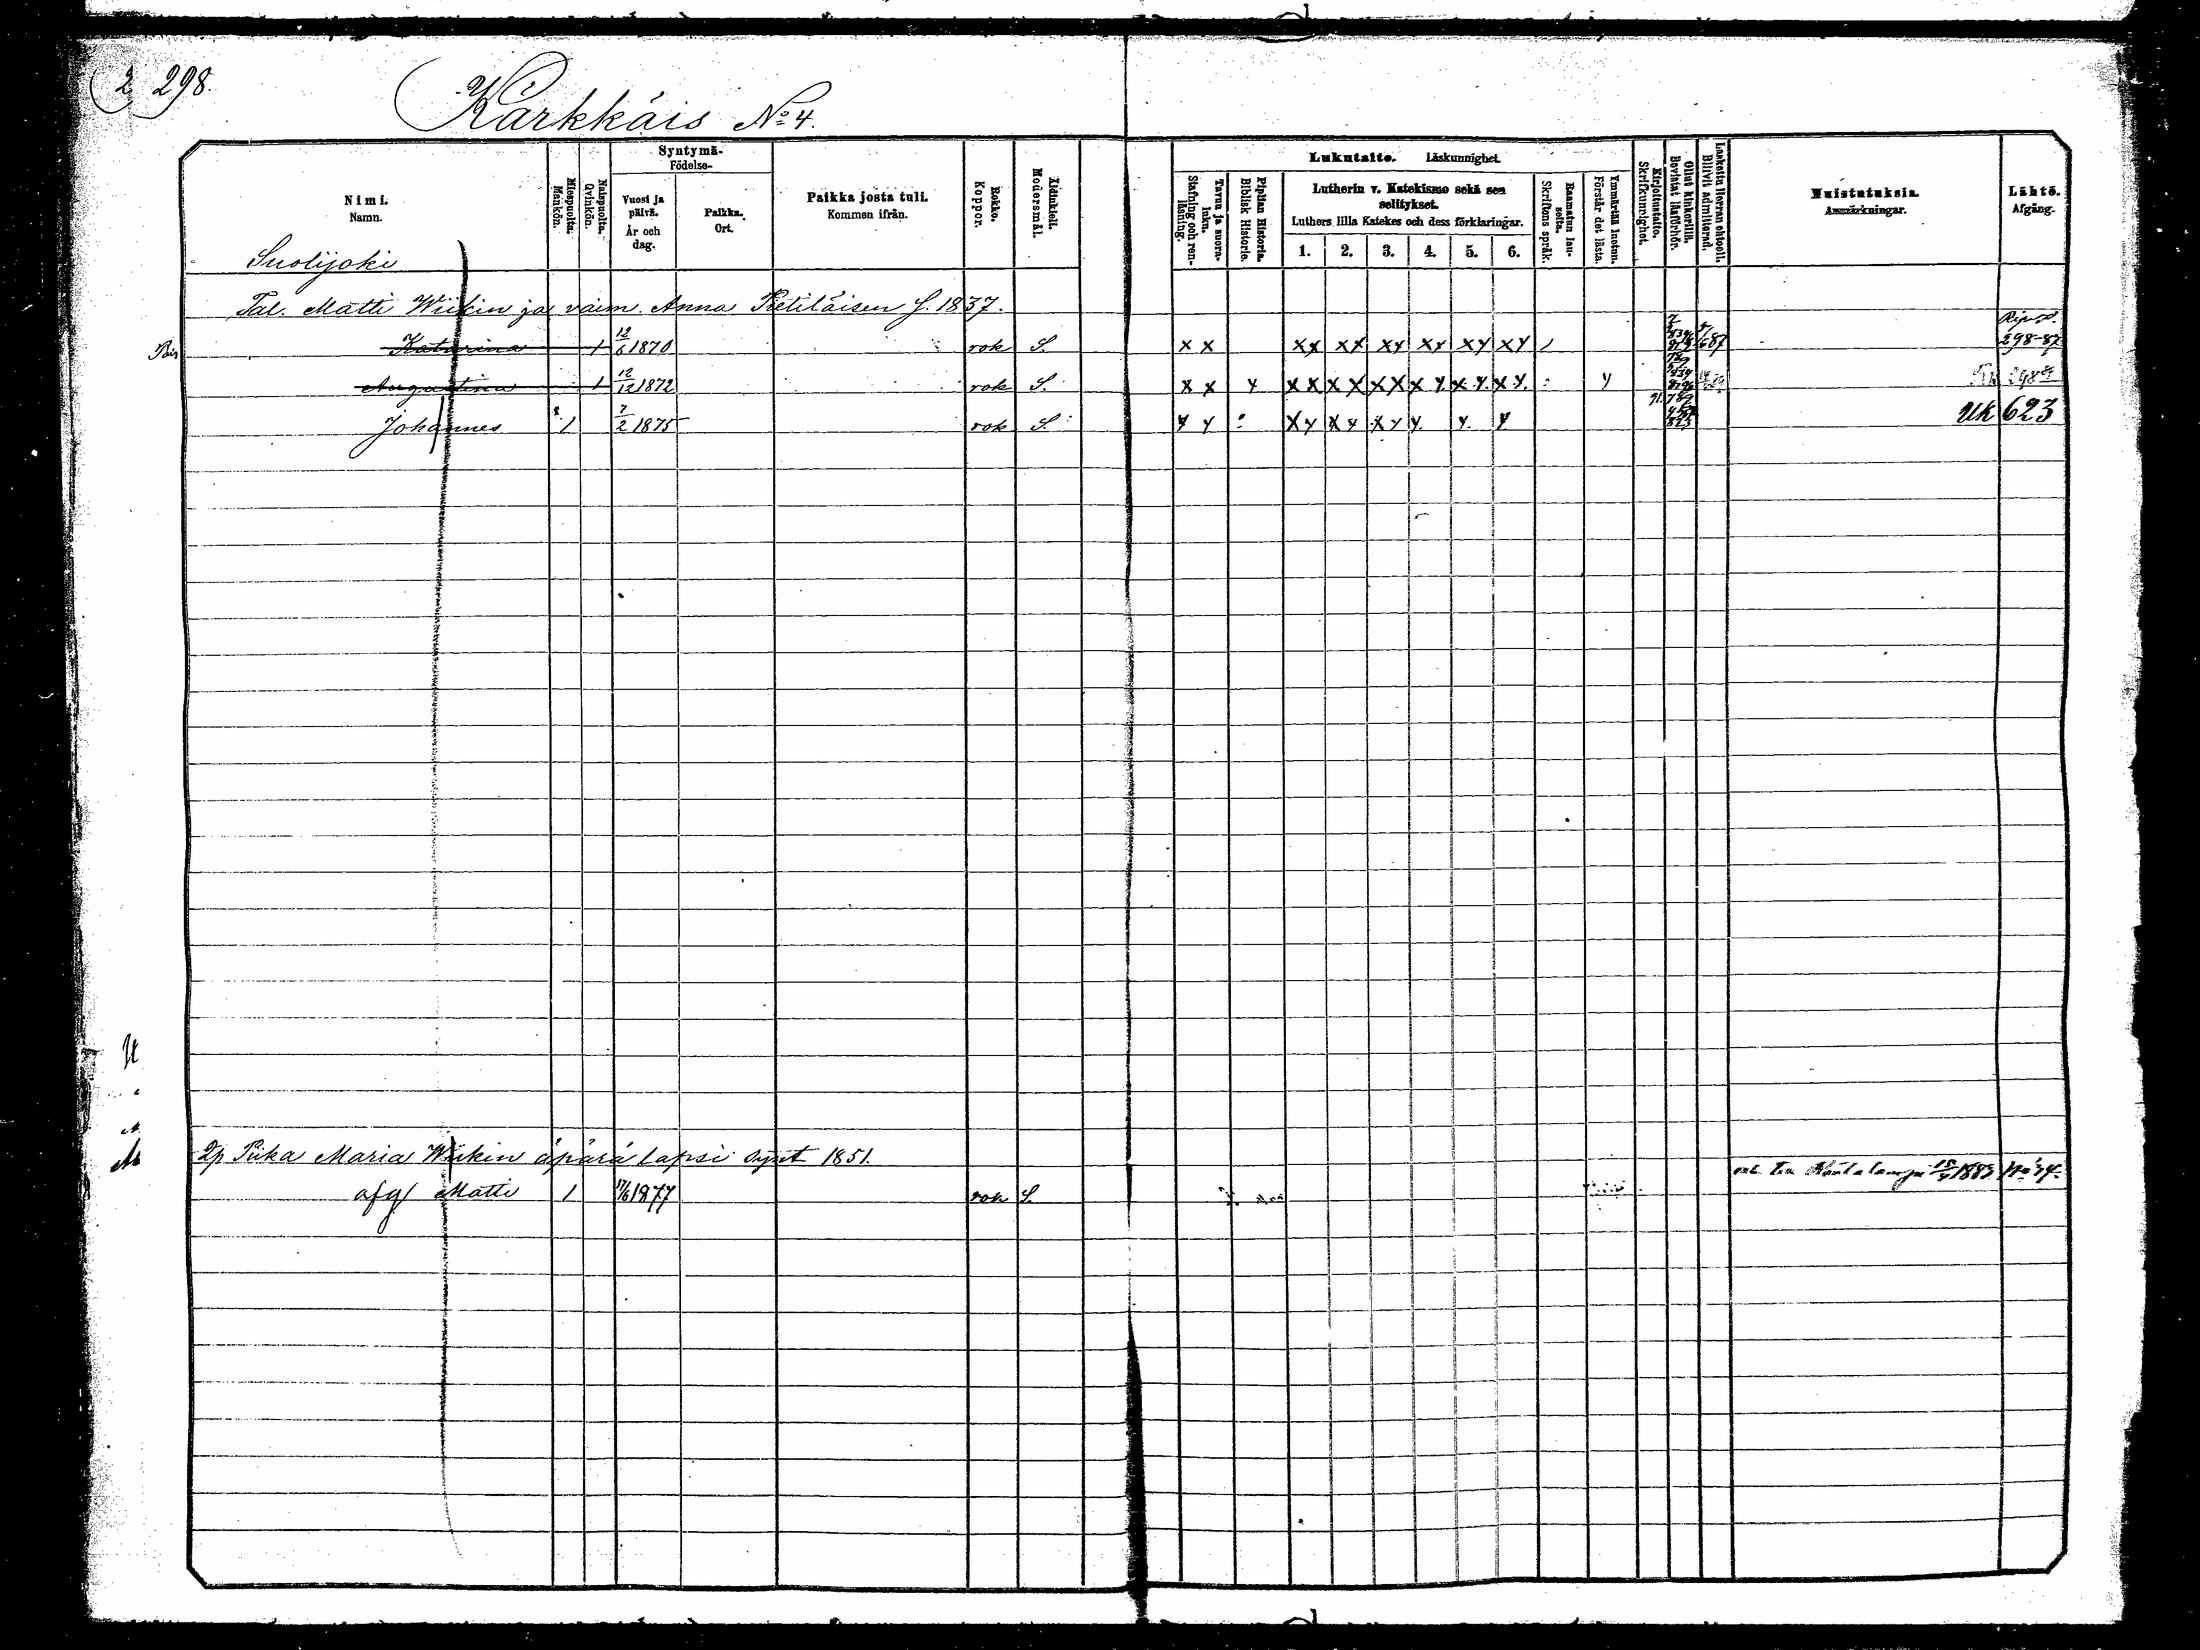 2 298.
Kärkkäis No 4.
Nimi.
Namn.
Miespuolia.
Mankön.
Naispuolia.
Qvinkön.
Syntymä-
Födelse-
Vuosi ja päivä.
År och dag.
Paikka.
Ort.
Paikka josta tuli.
Kommen ifrån.
Rokko.
Koppor.
Äidinkieli.
Modersmål.
Lukutaito. Läskunnighet.
Tavuu ja suoraluku.
Stafning och renläsning.
Piplian Historia.
Biblisk Historie.
Lutherin v. Katekismo sekä sen selitykset.
Luthers lilla Katekes och dess förklaringar.
1. 2. 3. 4. 5. 6.
Raamatun lauseita.
Skriftens språk.
Ymmärtää luetun.
Förstår det lästa.
Kirjoitustaito.
Skrifkunnighet.
Ollut kinkerillä.
Bevistat läsförhör.
Laskettu Herran ehtoolli.
Blifvit admitterad.
Muistutuksia.
Anmärkningar.
Lähtö.
Afgång.
Suolijoki
Tal. Matti Wiikin ja vaim. Anna Pietiläisen S. 1837.
Katarina 1 12/6 1870 rok S. x x xx xx xy xy xy xy 298-87
Augustina 1 12/12 1872 rok S. x x y xx xx xx xy xy xy y 298
Johannes 1 7/2 1875 rok S. y y xy xy xy y y y Uk 623
2p Piika Maria Wiikin äpärä lapsi synt 1851.
afg Matti 1 17/6 1877 rok S. 1883 No 74